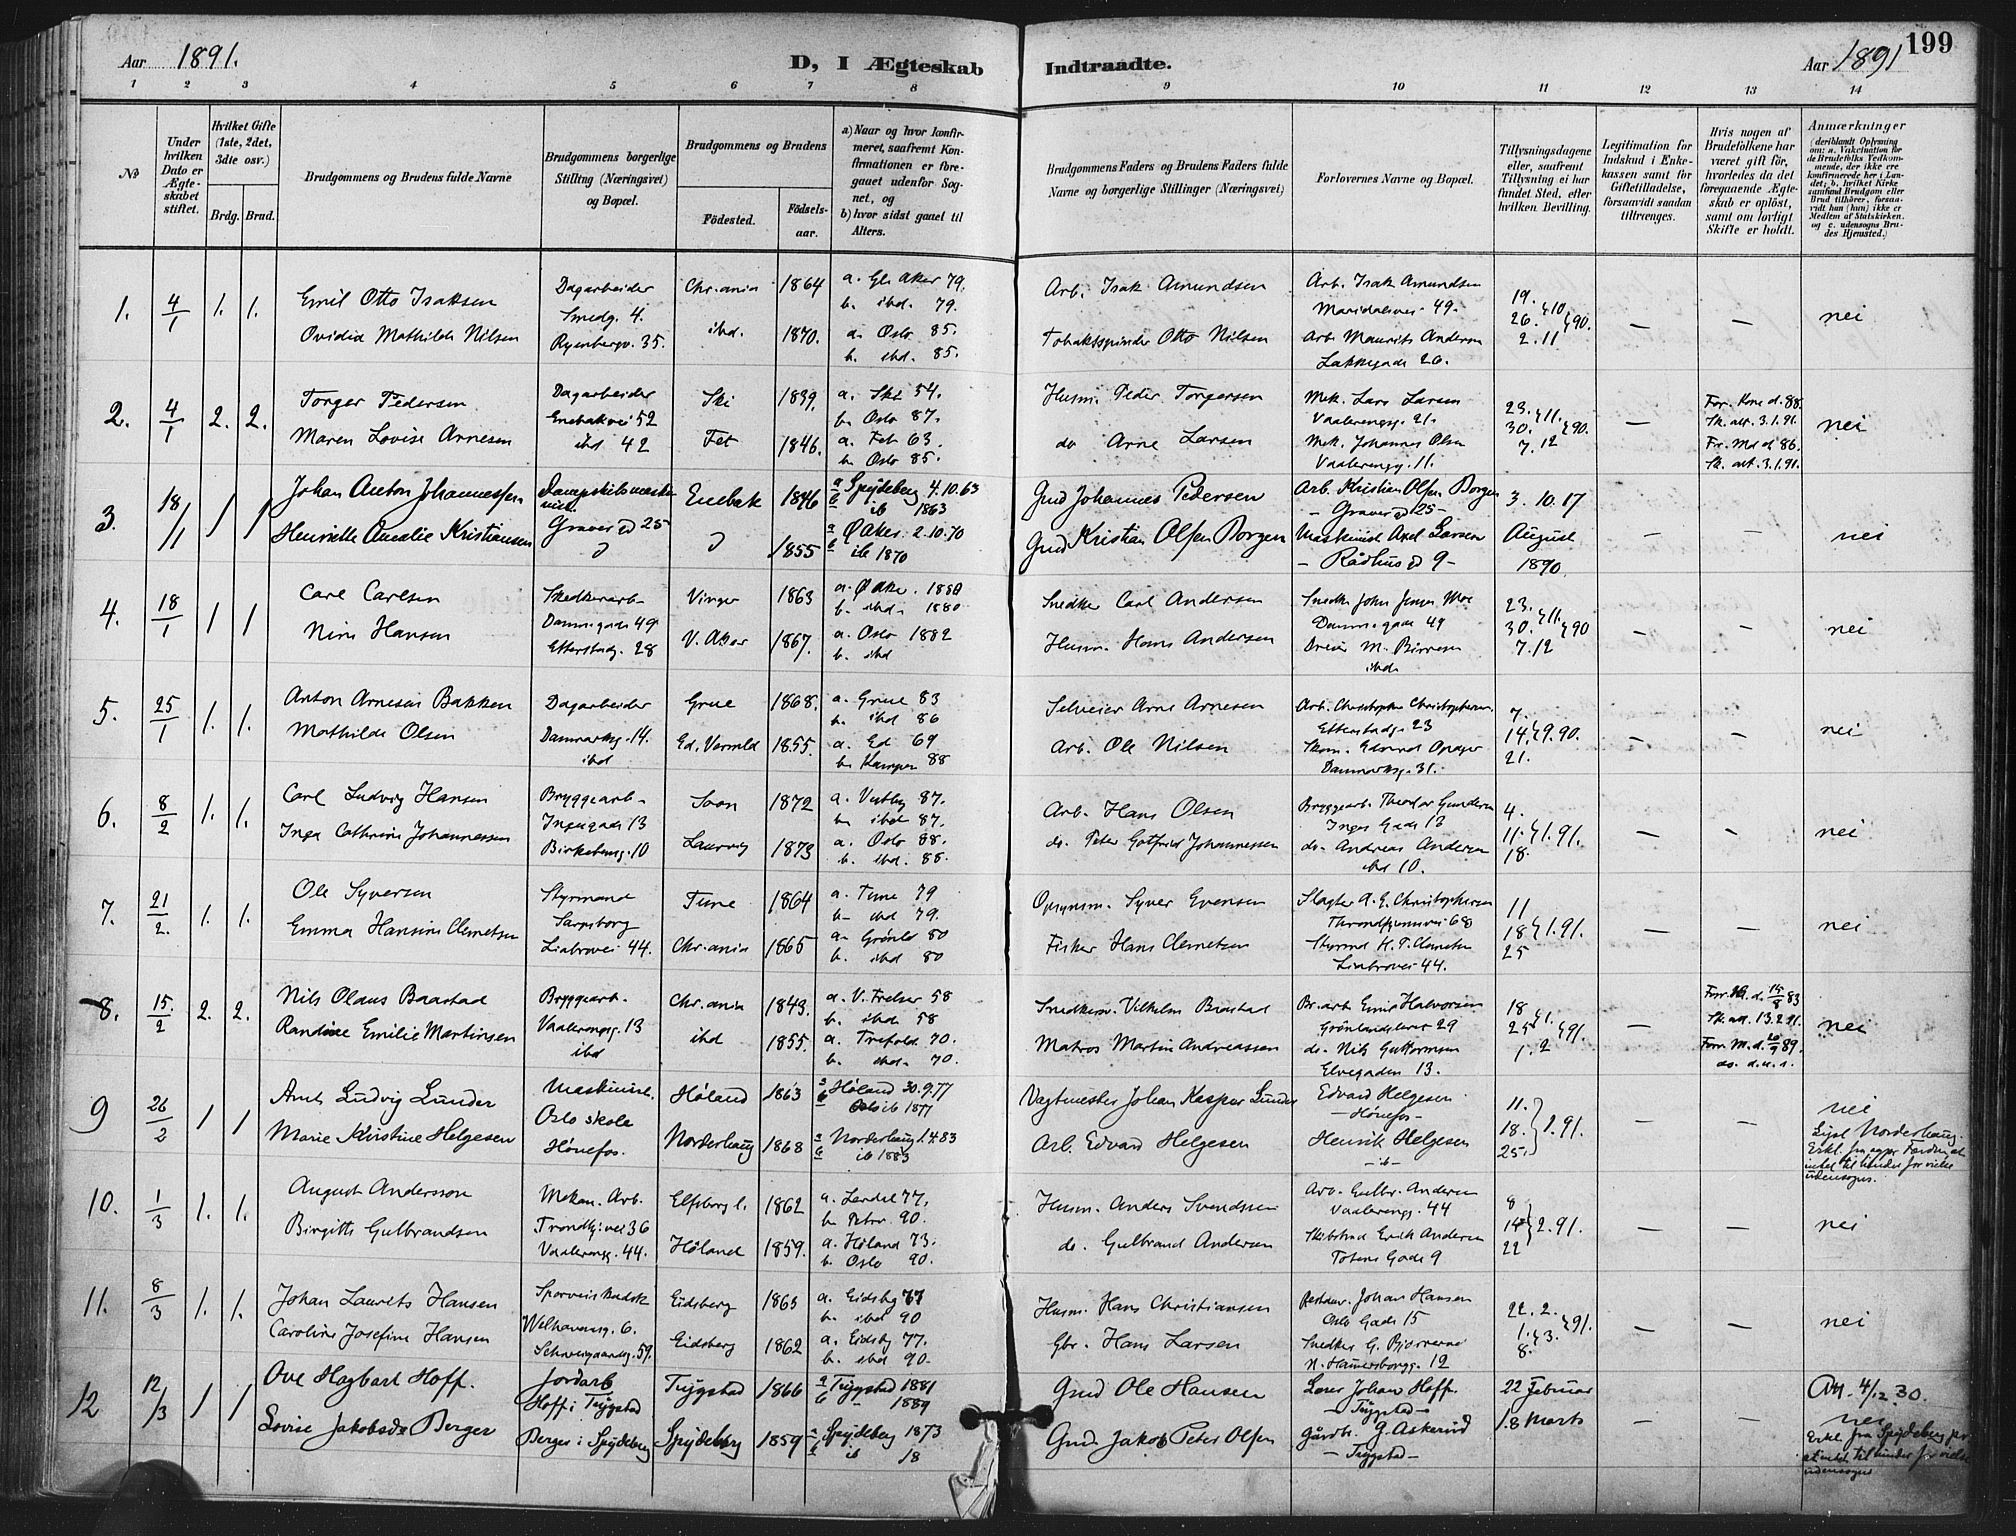 Aar 1891.
D, I Ægteskab Indtraadte.
Aar 1891
199
1 2 3 4 5 6 7 8 9 10 11 12 13 14
No
Under hvilken Dato er Ægteskabet stiftet.
Hvilket Gifte (1ste, 2det, 3die osv.)
Brdg. Brud.
Brudgommens og Brudens fulde Navne
Brudgommens borgerlige Stilling (Næringsvei) og Bopæl.
Brudgommens og Brudens
Födested. Födsels-aar.
a) Naar og hvor konfirmeret, saafremt Konfirmationen er foregaaet udenfor Sognet, og
b) hvor sidst gaaet til Alters.
Brudgommens Faders og Brudens Faders fulde Navne og borgerlige Stillinger (Næringsvei)
Forlovernes Navne og Bopæl.
Tillysningsdagene eller, saafremt Tillysning ei har fundet Sted, efter hvilken Bevilling.
Legitimation for Indskud i Enkekassen samt for Giftetilladelse, forsaavidt saadan tiltrænges.
Hvis nogen af Brudefolkene har været gift för, hvorledes da det foregaaende Ægteskab er oplöst, samt om lovligt Skifte er holdt.
Anmærkninger
(deriblandt Oplysning om: a. Vakcination for de Brudefolks Vedkommende, der ikke ere konfirmerede her i Landet; b. hvilket Kirkesamfund Brudgom eller Brud tilhörer, forsaavidt han (hun) ikke er Medlem af Statskirken, og c. udensogns Brudes Hjemsted.)
1. 4/1 1. 1. Emil Otto Isaksen Dagarbeider Smedg. 4. Chr.ania 1864 a. Gl. Aker 79. b. ibd. 79. Arb. Isak Amundsen Arb. Isak Amundsen Maridalsvei 49. 19. 26. 10 90. 2. 11 — — nei
Ovidia Mathilde Nilsen Ryenbergv. 35. ibd. 1870. a. Oslo 85. b. ibd. 85. Tobakspinder Otto Nilsen Arb. Maurits Andersen Lakkegade 26.
2. 4/1 2. 2. Torger Pedersen Dagarbeider Enebakvei 52 Ski 1839. a. Ski 54. b. Oslo 87. Husm. Peder Torgersen Mek. Lars Larsen Vaalerengg. 21. 23. 30. 11. 90. 7. 12 — For. Kone d. 88. Sk. att. 3.1.91. nei
Maren Lovise Arnesen ibd 42 Fet 1846. a. Fet 63. b. Oslo 85. do Arne Larsen Mek. Johannes Olsen Vaalerengg. 11. Fr. Md d 86. Sk. att. 3.1.91.
3. 18/1 1 1 Johan Anton Johannessen Graver gd 25 Enebak 1846 a Spydeberg 4.10.63 b ib 1863 Gmd Johannes Pedersen Arb. Kristian Olsen Borgen - Graver gd 25 - 3. 10. 17 August 1890. — — nei
Henriette Amalie Kristiansen 1855 a Ø Aker. 2.10.70 b ib 1870 Gmd Kristian Olsen Borgen Maskinist Axel Larsen - Rådhus gd 9 -
4. 18/1 1 1 Carl Carlsen Snedkerarb. Dannegade 49 Vinger 1863 a. Ø Aker. 1880 b. ibd. 1880. Snedker Carl Andersen Snedk. John Jensen Moe Dannegade 49 23. 30. 11. 90 7. 12 — — nei
Nini Hansen Etterstadg. 28 V. Aker 1867. a. Oslo 1882 b. ibd Husm. Hans Andersen Dreier M. ibd.
5. 25/1 1. 1. Anton Arnesen Bakken Dagarbeider Grue 1868. a. Grue 83 b. ibd 86 Selveier Arne Arnesen Arb. Christopher Christophersen Etterstadg. 23 7. 14. 9. 90. 21. — — nei
Mathilde Olsen Danmarksg. 14. ibd Ed. Vermld 1855. a. Ed 69 b. Kampen 88 Arb. Ole Nilsen Skom. Edvard Danmarksg. 31.
6. 8/2 1. 1. Carl Ludvig Hansen Bryggearb. Ingesgade 13 Soon 1872 a. Vestby 87. b. ibd 87. Arb. Hans Olsen Bryggearb. Theodor Gundersen Inges Gade 13 4. 11. 1.91. 18. — — nei
Inga Cathrine Johannessen Birkebeng. 10 Laurvig 1873 a. Oslo 88. b. ibd. 88. do. Peter Gotfried Johannessen do. Andreas Andersen ibd 10.
7. 21/2. 1. 1. Ole Syversen Styrmand Sarpsborg Tune 1864 a. Tune 79 b. ibd 79. Opsynsm. Syver Evensen Slagter A. E. Christophersen Throndhjemsvei 68 11 18 1.91. 25 — — nei
Emma Hansine Clemetsen Liabrovei 44. Chr.ania 1865 a. Grønld 80 b. ibd 80 Fisker Hans Clemetsen Styrmd H. P. Clemetsen Liabrovei 44.
8. 15./2 2. 2. Nils Olaus Baastad Bryggearb. Vaalerengg. 13 Chr.ania 1843. a. V. Frelser 58 b. ibd 58 Snedkerm. Vilhelm Baastad Br.arb Emil Halvorsen Grønlandsleret 29 18 25 1. 91. 1. 2 — Forr. H. d. 15/8 83 Sk. att. 13.2.91. nei
Randine Emilie Martinsen ibd ibd 1855. a. Trefold. 70. b. ibd. 70. Matros Martin Andreassen do. Nils Guttormsen Elvegaden 13. Forr. M. d. 20/9 89. do. d. u. s.
9 26/2 1 1 Arnt Ludvig Lunder Maskinist. Oslo skole Høland 1863 a Høland 30.9.77 b Oslo ib 1877 Vagtmester Johan Kasper Lunder Edvard Helgesen - Hønefos - 11. 18. 1.91. 25. — — nei
Marie Kirstine Helgesen Hønefos. Norderhaug 1868 a Norderhaug 1.4.83 b ib 1883 Arb. Edvard Helgesen Henrik Helgesen - ib - Lyst Norderhaug. Erkl. fra intet til hinder for vielse udensogns.
10. 1/3 1. 1. August Andersson Mekan. Arb. Trondhj.vei 36 Elfsborg l. 1862 a. 77. b. Petri 90. Husm. Anders Svendsen Arb. Gulbr. Andersen Vaalerengg. 44 8 15 2.91. 22 — — nei
Birgitte Gulbrandsen Vaalerengg. 44. Høland 1859. a. Høland 73. b. Oslo 90. do. Gulbrand Andersen Erik Andersen Totens Gade 9
11. 8/3 1. 1. Johan Laurits Hansen Welhavensg. 6. Eidsberg 1863 a. Eidsbg 77 b. ibd 90 Husm. Hans Christiansen Restaur. Johan Hansen Oslo Gade 15 22. 2. 1. 3. 91. 8. — — nei
Caroline Josefine Hansen Schweigaardsg. 59. Eidsberg 1862 a. Eidsbg 77. b. ibd 90. Gbr. Hans Larsen Snedker G. N. Hammersborgg. 12
12 12/3 1 1 Ove Hagbart Hoff. Jordarb Hoff i Trygstad Trygstad 1866 a Trygstad 1881 b - 1889 Gmd Ole Hansen Lærer Johan Hoff. - Trygstad - 22 Februar 1. 8 Marts — — Att. 4/12 30. nei
Lovise Jakobsdr Berger Berger i Spydeberg Spydeberg 1859 a Spydeberg 1873 b ib 18 Gmd Jakob Peter Olsen Gårdb. G. Askerud - Trygstad - Erkl. fra Spydeberg for at intet til hinder for vielse udensogns